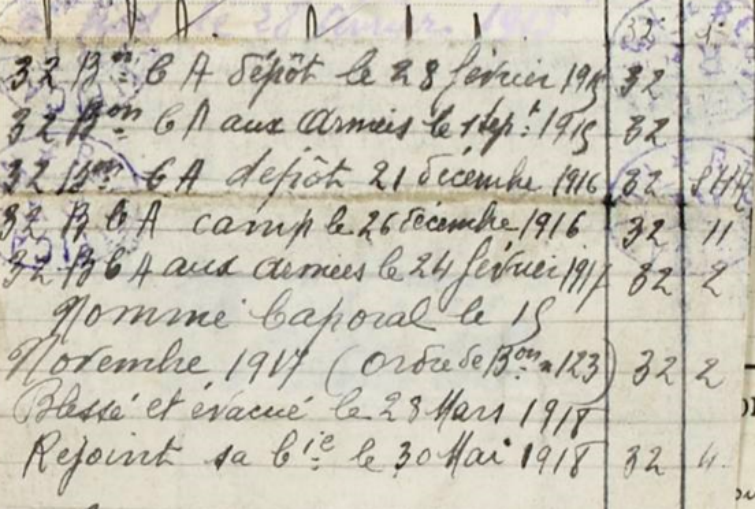 32 Bon C A dépôt le 28 février 1915 32
32 Bon C A aux armées le 1 sept: 1915 32
32 Bon C A dépôt 21 décembre 1916 32 SHR
32 B C A camp le 26 décembre 1916 32 11
32 B C A aux armées le 24 février 1917 32 2
Nommé Caporal le 15
Novembre 1917 (Ordre de Bon n 123) 32 2
Blessé et évacué le 28 Mars 1918
Rejoint sa Cie le 30 Mai 1918 32 4